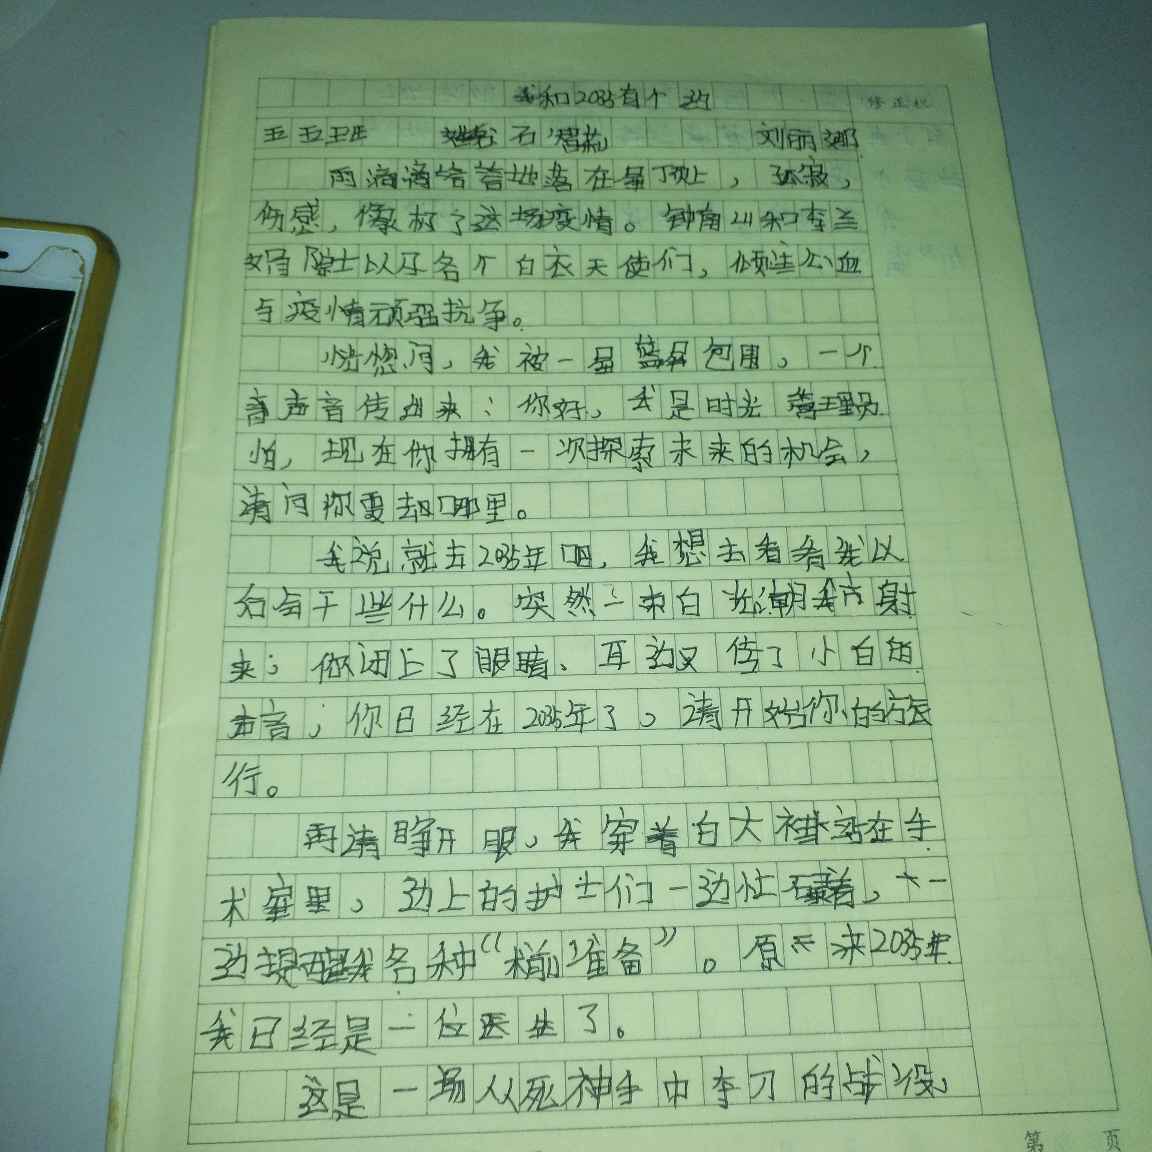 我和2035有个约
修正栏
五五班 姓名石智 刘丽娜
雨滴滴答答地落在屋顶上，孤寂，
伤感，像极了这场疫情。钟南山和李兰
娟院士以及各个白衣天使们，倾注心血
与疫情顽强抗争。
恍惚间，我被一层蓝包围，一个
声音传出来：你好，我是时光管理员
怕，现在你拥有一次探索未来的机会，
请问你要去哪里。
我说就去2035年吧，我想去看看我以
后会干些什么。突然一束白光朝我方射
来；我闭上了眼睛、耳边又传了小白的
声音；你已经在2035年了，请开始你的旅
行。
再睁开眼，我穿着白大褂站在手
术室里，边上的护士们一边忙碌着，一
边提醒我各种“术前准备”。原来2035年
我已经是一位医生了。
这是一场从死神手中夺刀的战役、
第 页